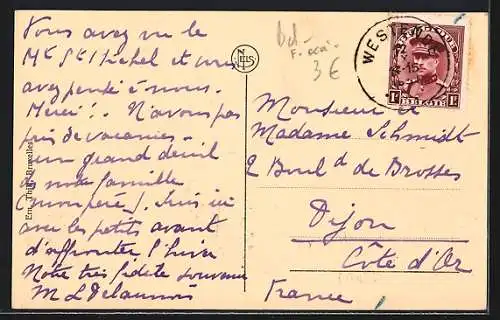 Vous avez vu le
Mt St Michel et vous
avez pensé à nous.
Merci! . N'avons pas
pris de vacances.
un grand deuil
à notre famille
(mon père). Suis ici
avec les petits avant
d'affronter l'hiver
Notre très fidèle souvenir
M L Delaunois
Ern. Thill, Bruxelles
NELS
3 €
WESTENDE
15
BELGIQUE
BELGIË
1F
1F
Monsieur et
Madame Schmidt
2 Boul d de Brosses
Dijon
Côte d'Or
France